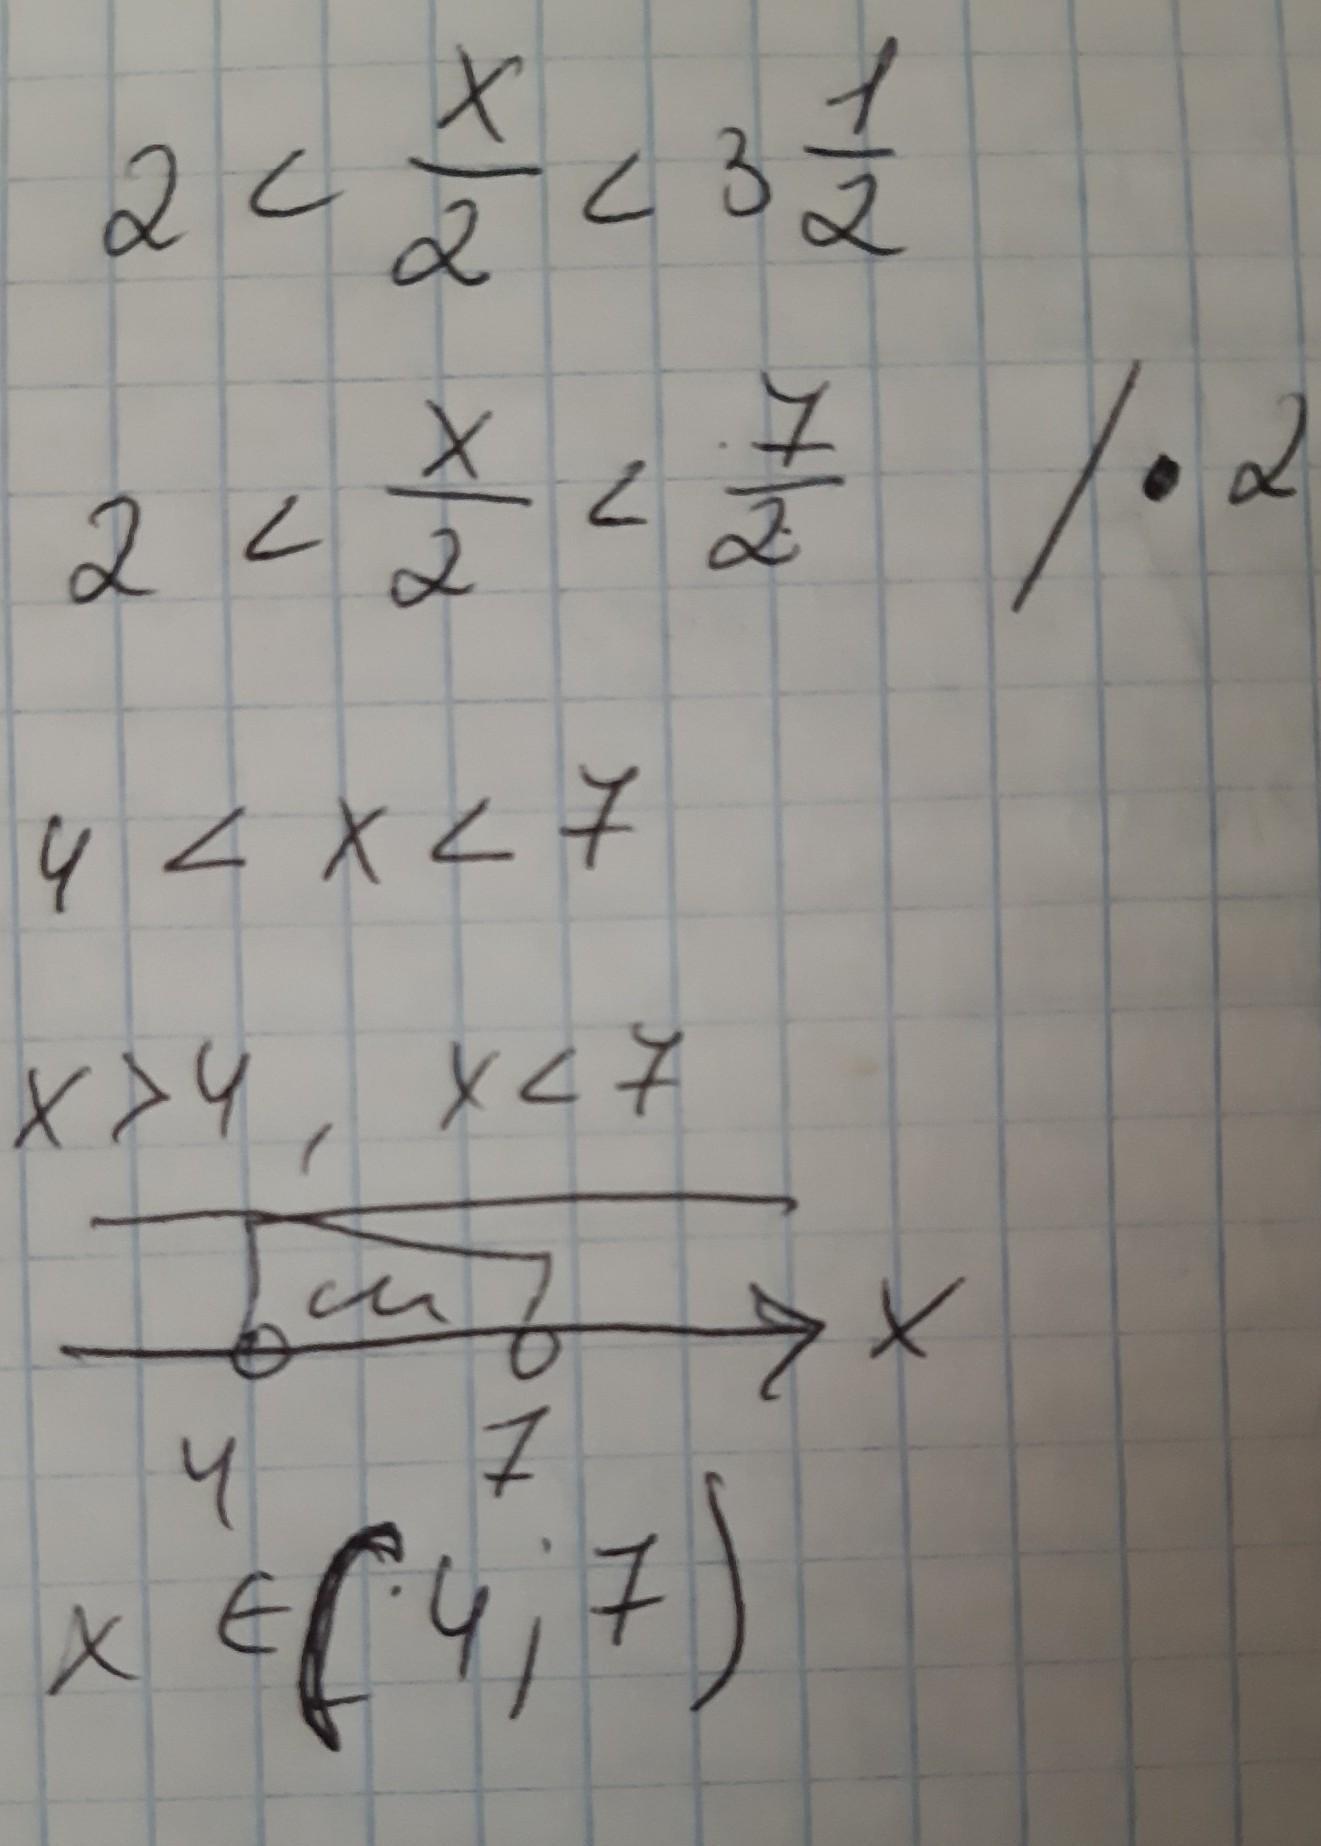 2 < x/2 < 3 1/2
2 < x/2 < 7/2 / • 2
4 < x < 7
x > 4, x < 7
x
4 7
x ∈ (4; 7)